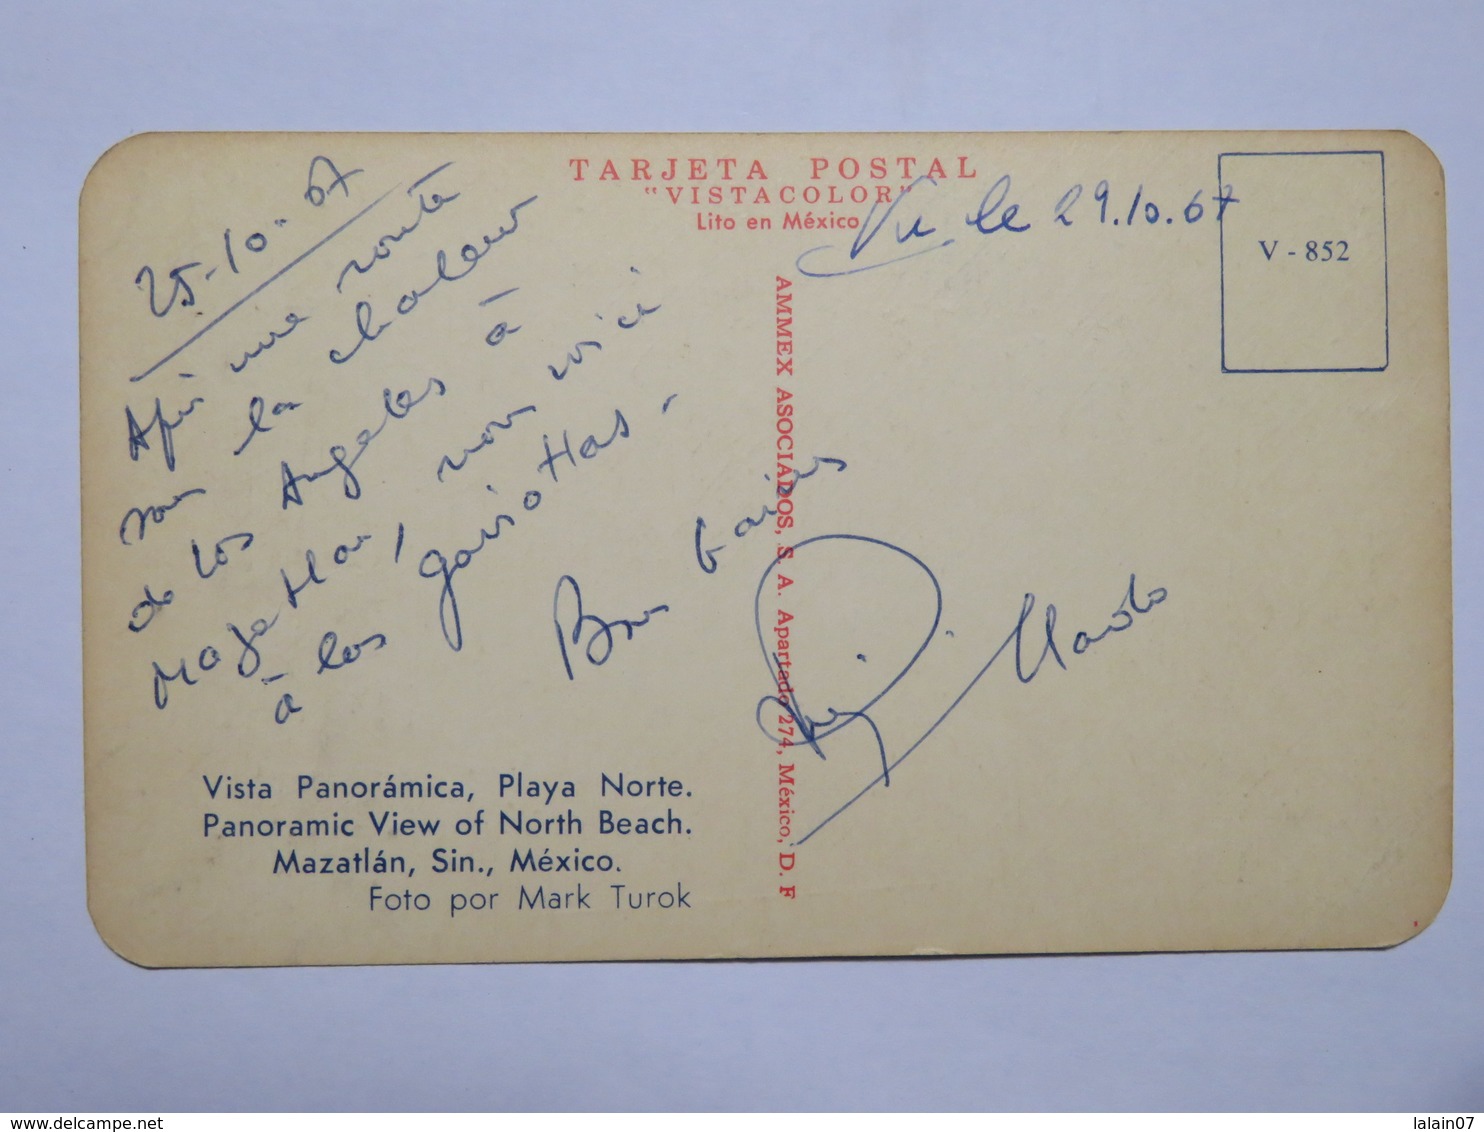 TARJETA POSTAL
"VISTACOLOR"
Lito en México
Vu le 29.10.67
V - 852
25-10-67
une route
sous la chaleur
de Los Angeles à
Mazatlan, nous voici
à las gaviottas -
Bons baisers
AMMEX ASOCIADOS, S. A. Apartado 274, México, D. F
Vista Panorámica, Playa Norte.
Panoramic View of North Beach.
Mazatlán, Sin., México.
Foto por Mark Turok
delcampe.net
lalain07